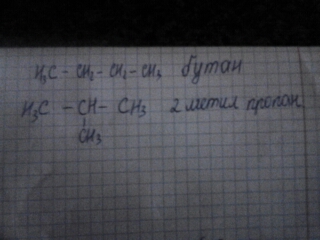 H₃C - CH₂ - CH₂ - CH₃ бутан
H₃C - CH - CH₃ 2 метил пропан
CH₃